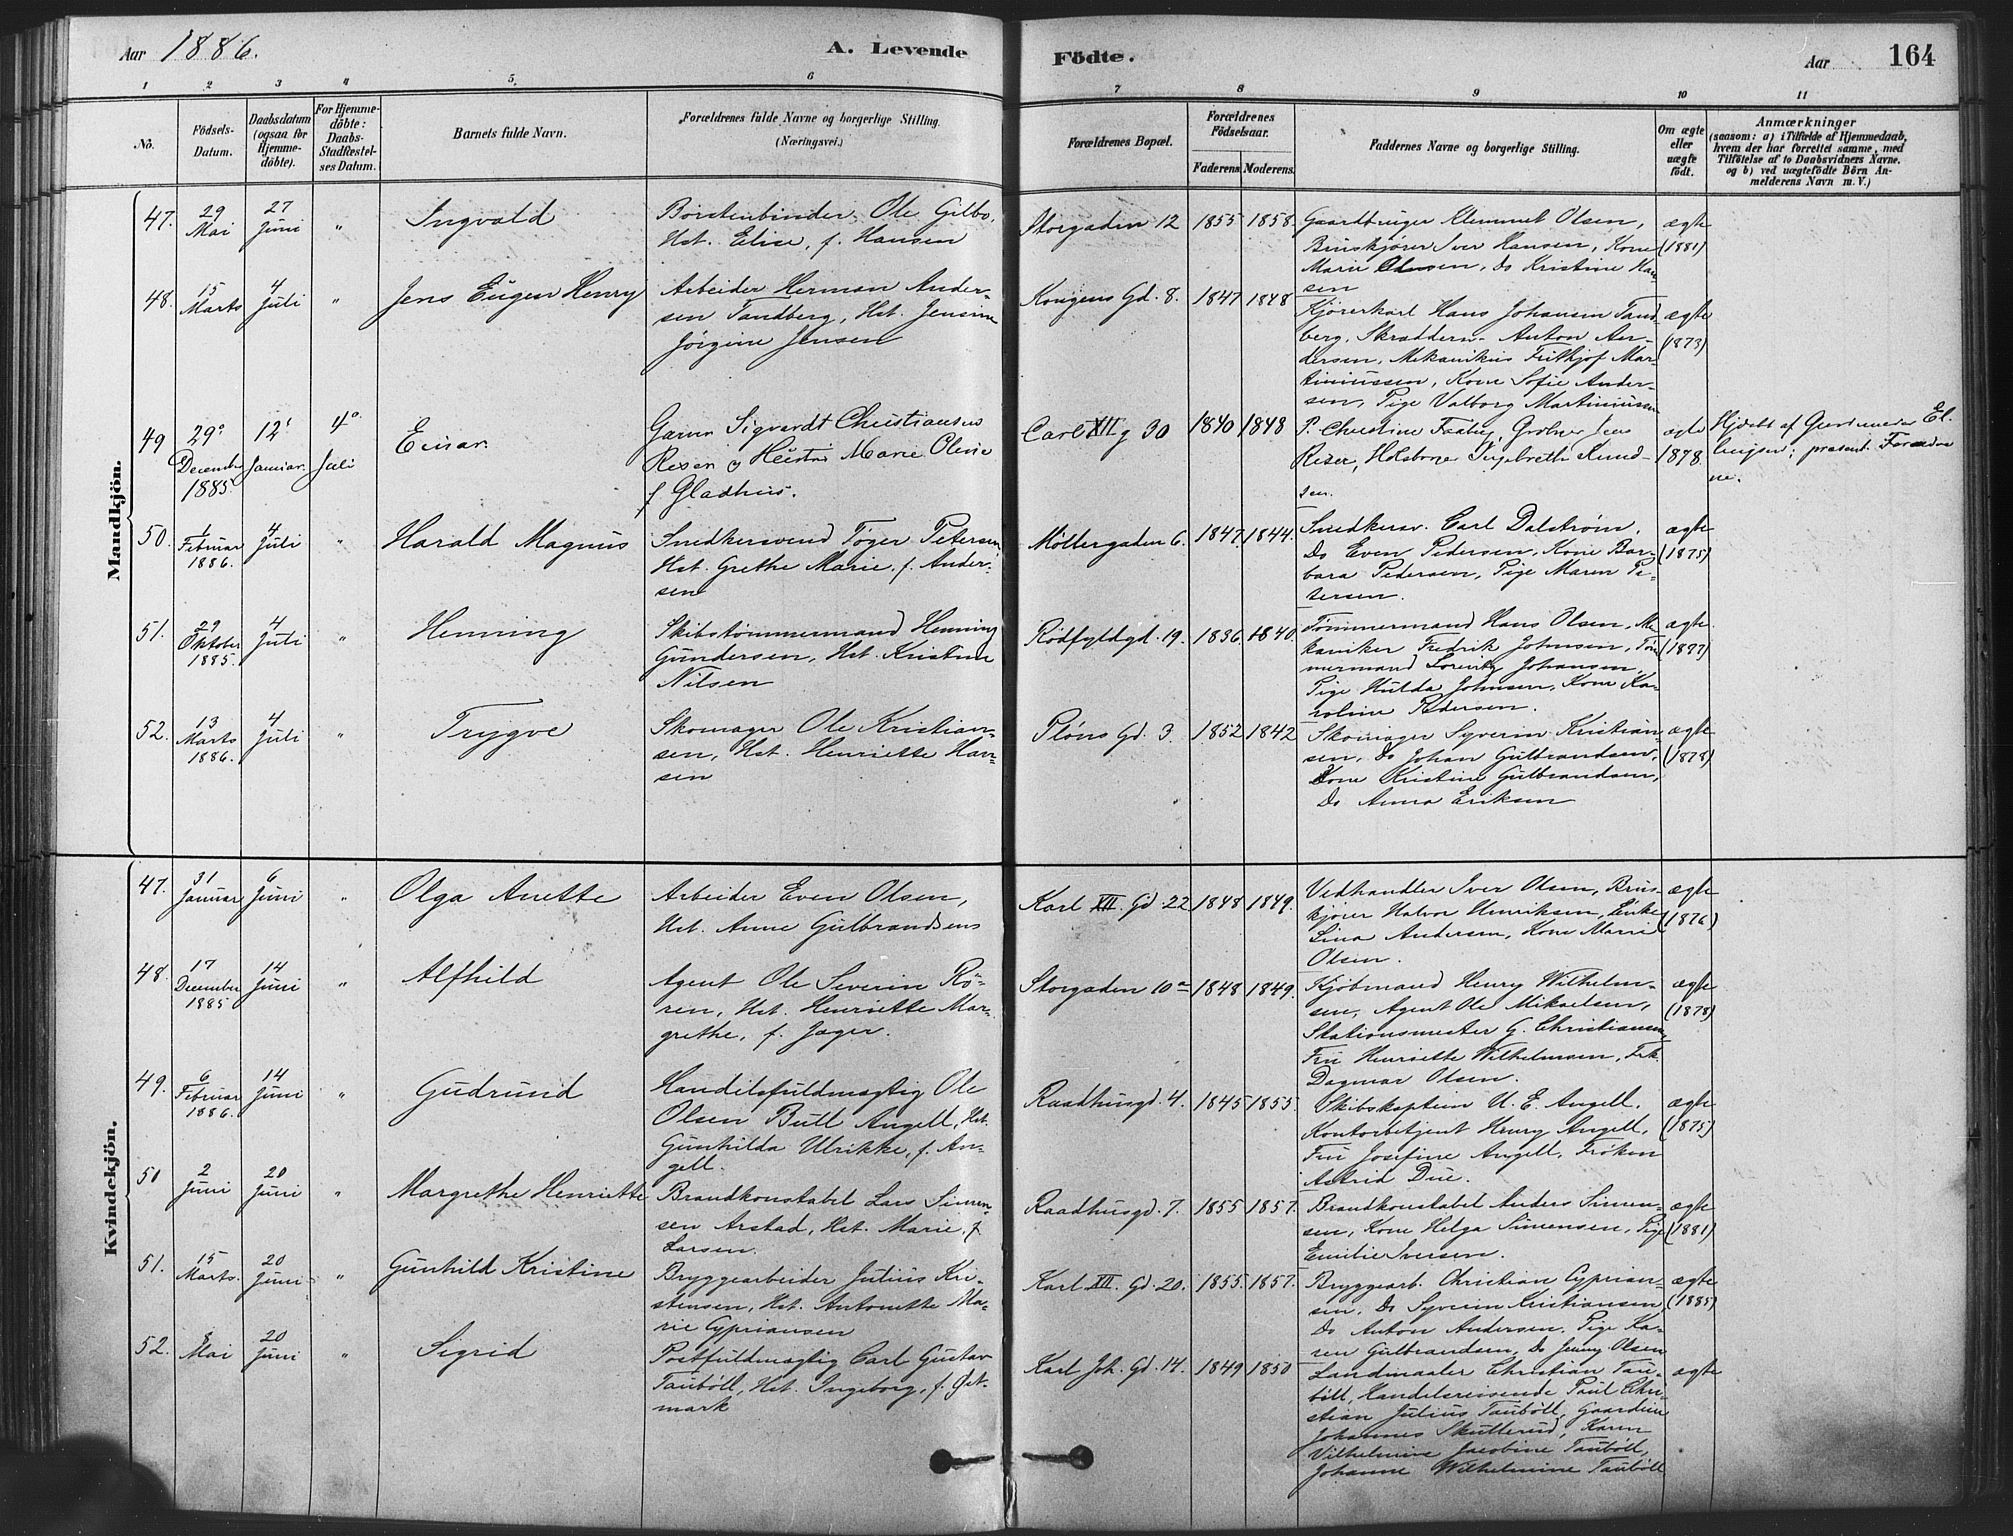 Aar 1886.
A. Levende Födte.
Aar
164
1 2 3 4 5 6 7 8 9 10 11
No.
Födsels-Datum.
Daabsdatum (ogsaa for Hjemme-döbte).
For Hjemme-döbte: Daabs-Stadfæstel-ses Datum.
Barnets fulde Navn.
Forældrenes fulde Navne og borgerlige Stilling (Næringsvei.)
Forældrenes Bopæl.
Forældrenes Födselsaar.
Faderens. Moderens.
Faddernes Navne og borgerlige Stilling.
Om ægte eller uægte födt.
Anmærkninger
(saasom: a) i Tilfælde af Hjemmedaab,
hvem der har forrettet samme, med
Tilföielse af to Daabsvidners Navne.
og b) ved uægtefödte Börn An-
melderens Navn m. V.)
Mandkjön.
47. 29 Mai 27 Juni " Ingvald
Borstenbinder Ole Gilbo,
Hst. Elise, f. Hansen
Storgaden 12 1855 1858
Gaardbruger Klemmet Olsen,
Bruskjører Iver Hansen, Kone
Marie Olsen, Do Kristine Han
sen
ægte (1881)
48. 15 Marts 4 Juli " Jens Eugen Henry
Arbeider Herman Ander-
sen Tandberg, Hst. Jensine
Jørgine Jensen
Kongens Gd. 8. 1847 1848
Kjørerkarl Hans Johansen Tand-
berg, Skræddersv. Anton An-
dersen, Mekanikus Frithjof Mar-
tiniussen, Kone Sofie Ander-
sen, Pige Valborg Martiniussen
ægte (1873)
49 29de December 1885 12te Januar. 4de Juli Einar.
Garver Sigvardt Christiansen
Rexer og Hustru Marie Olesie
f Gladhus.
Carl XII g 30 1840 1848
P. Christine Faaberg,
Reser, Ingebreth Knud-
sen.
ægte 1878.
Hjdøbt af Gjordemoder El-
lingsen; præsent. Forældre
ne.
50. 1 Februar 1886. 4 Juli " Harald Magnus
Snedkersvend Tøger Petersen
Hst. Grethe Marie, f. Ander-
sen
Møllergaden 6. 1847. 1844.
Snedkersv. Carl Dalstrøm,
Do Even Pedersen, Kone Bar-
bara Pedersen, Pige Maren Pe-
tersen.
ægte (1875)
51. 29 Oktober 1885. 4 Juli " Henning
Skibstømmermand Henning
Gundersen, Hst. Kristine
Nilsen
Rødfyldgd. 19. 1836. 1840.
Tømmermand Hans Olsen, Me
kaniker Fredrik Johnsen, Tøm
mermand Lorentz Johansen,
Pige Hulda Johnsen, Kone Ka-
roline Pedersen.
ægte (1877)
52. 13 Marts 1886. 4 Juli " Trygve
Skomager Ole Kristian-
sen, Hst. Henriette Han-
sen
Pløns Gd. 3. 1852 1842
Skomager Syverin Kristian-
sen, Do Johan Gulbrandsen,
Kone Kristine Gulbrandsen,
Do Anna Eriksen
ægte (1878)
Kvindekjön.
47. 31 Januar 6 Juni " Olga Anette
Arbeider Even Olsen,
Hst. Anne Gulbrandsens
Karl XII. Gd. 22 1848 1849.
Vedhandler Iver Olsen, Brus-
kjører Halvor Henriksen, Enke
Lina Andersen, Kone Marie
Olsen.
ægte (1876)
48. 17 December 1885 14 Juni " Alfhild
Agent Ole Severin Rö-
ren, Hst. Henriette Mar-
grethe, f. Jager.
Storgaden 10a 1848 1849.
Kjøbmand Henry Wilhelm-
sen, Agent Ole Mikaelsen,
Stationsmester G. Christiansen
Fru Henriette Wilhelmsen, Frk.
Dagmar Olsen.
ægte (1878)
49. 6 Februar 1886. 14 Juni " Gudrund
Handelsfuldmægtig Ole
Olsen Bull Angell, Hst.
Gunhilda Ulrikke, f. An-
gell.
Raadhusgd. 4. 1845 1855.
Skibskaptein U. E. Angell,
Kontorbetjent Henry Angell,
Fru Josefine Angell, Frøken
Astrid Due.
ægte (1875)
50 2 Juni 20 Juni " Margrethe Henriette
Brandkonstabel Lars Simen-
sen Arstad, Hst. Marie, f
Larsen.
Raadhusgd. 7. 1855 1857.
Brandkonstabel Anders Simen-
sen, Kone Helga Simensen, Pige
Emilie Iversen.
ægte (1881)
51. 15 Marts. 20 Juni " Gunhild Kristine
Bryggearbeider Julius Kri-
stensen, Hst. Antonette Ma-
rie Cypriansen
Karl XII. Gd. 20. 1855. 1857.
Bryggearb. Christian Cyprian-
sen, Do Syverin Kristiansen,
Do Anton Andersen, Pige Ka-
ren Gulbrandsen, Do Jenny Olsen
ægte (1885)
52. 8 Mai 20 Juni " Sigrid
Postfuldmægtig Carl Gustav
Taubøll, Hst. Ingeborg, f. Øst-
mark
Karl Joh. Gd. 14. 1849 1850
Landmaaler Christian Tau-
bøll, Handelsreisende Paul Chri-
stian Julius Taubøll, Gaardeier
Johannes Skutterud, Karen
Vilhelmine Jacobine Taubøll,
Johanne Wilhelmine Taubøll
ægte